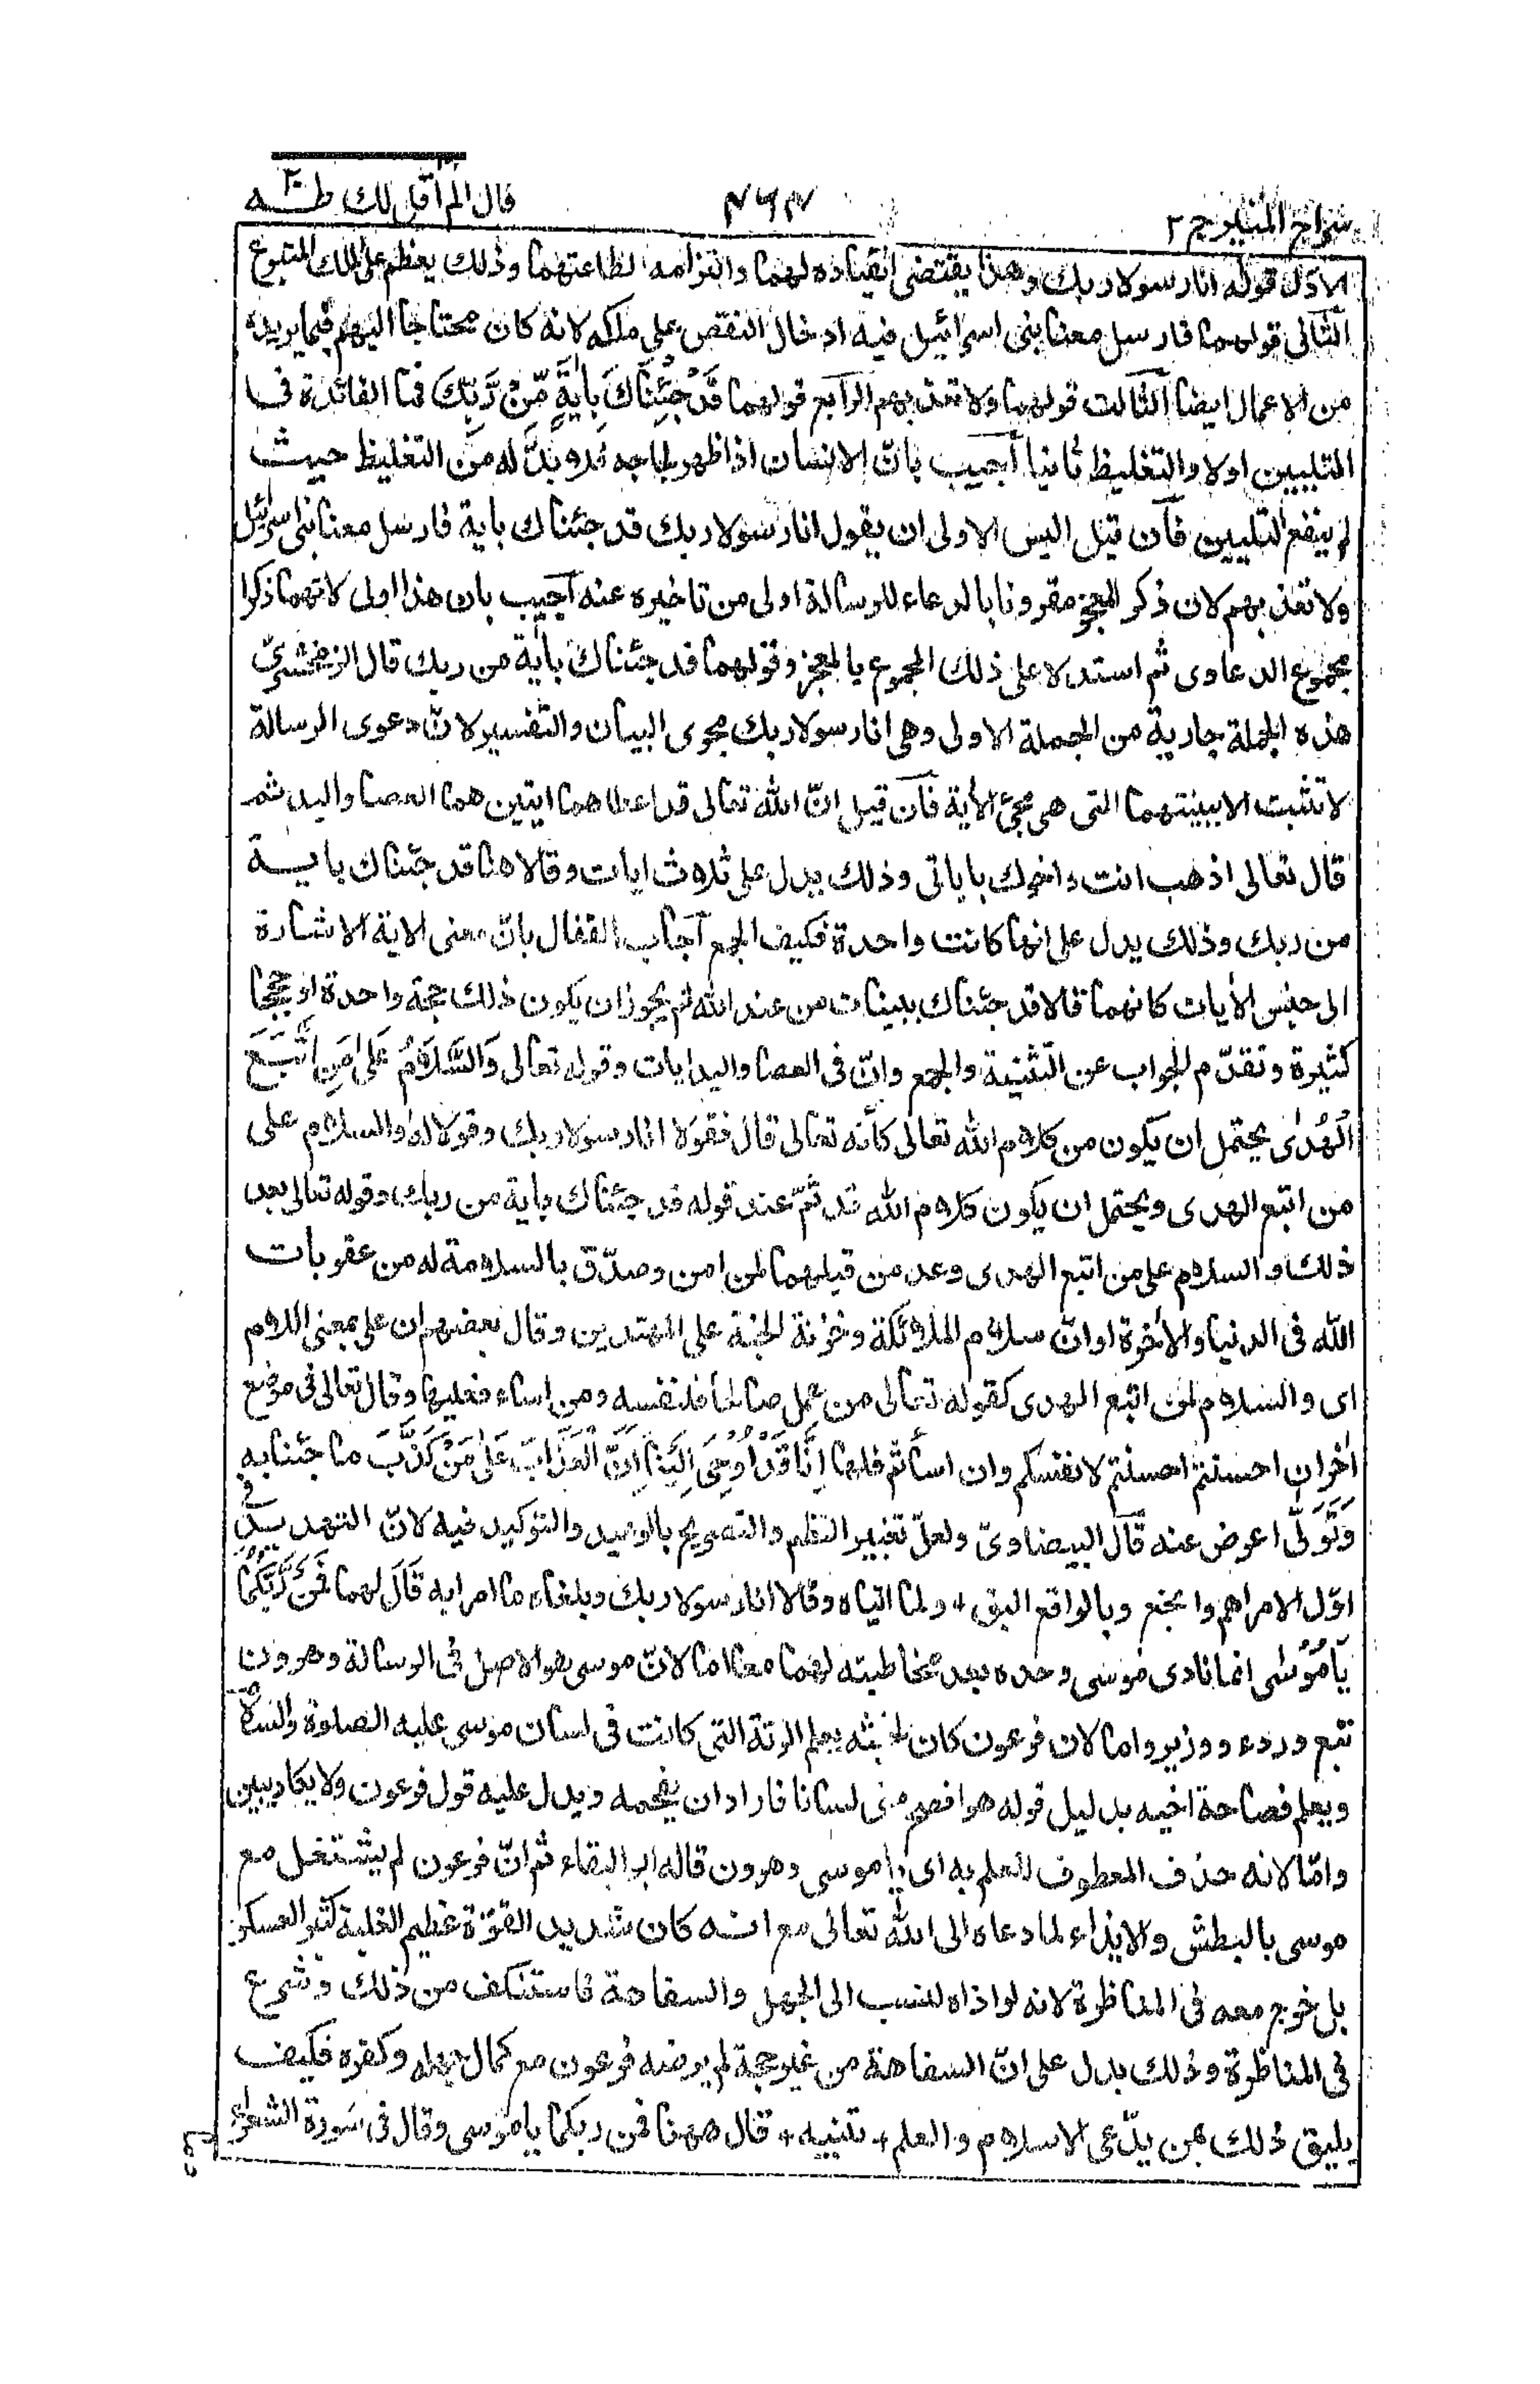 سراج المنير ج ٢
٤٦٤
قال الم اقل لك طه ٢٠
الاوّل قوله انا رسولا ربك وهذا يقتضى انقياده لهما والتزامه لطاعتهما وذلك يعظم على الملك المتبوع
الثانى قولهما فارسل معنا بنى اسرائيل فيه ادخال النقص على ملكه لانه كان محتاجا اليهم فيما يريده
من الاعمال ايضا الثالث قولهما ولا تعذبهم الرابع قولهما قَدْ جِئْنَاكَ بِاٰيَةٍ مِّنْ رَّبِّكَ فما الفائدة فى
التليين اولا والتغليظ ثانيا اجيب بانّ الانسان اذا ظهر لجاجه فلا بدّ له من التغليظ حيث
لم ينفع التليين فان قيل اليس الاولى ان يقول انا رسولا ربك قد جئناك باية فارسل معنا بنى اسرائيل
ولا تعذبهم لان ذكر المعجز مقرونا بالدعاء للرسالة اولى من تاخيره عنه اجيب بان هذا اولى لانهما ذكرا
مجموع الدعاوى ثم استدلا على ذلك المجموع بالمعجز وقولهما قد جئناك باٰية من ربك قال الزمخشرىّ
هذه الجملة جارية من الجملة الاولى وهى انا رسولا ربك مجرى البيان والتفسير لانّ دعوى الرسالة
لا تثبت الا ببينتهما التى هى مجئ الاٰية فان قيل انّ الله تعالى قد اعطاهما ايتين هما العصا واليد ثم
قال تعالى اذهب انت واخوك باياتى وذلك يدل على ثلاث ايات وقالا هنا قد جئناك باية
من ربك وذلك يدل على انها كانت واحدة فكيف الجمع اجاب القفال بانّ معنى الاية الاشارة
الى جنس الاٰيات كانهما قالا قد جئناك ببينات من عند الله ثم يجوز ان يكون ذلك حجة واحدة او حججا
كثيرة وتقدّم الجواب عن التثنية والجمع وانّ فى العصا واليد ايات وقوله تعالى وَالسَّلَامُ عَلٰى مَنِ اتَّبَعَ
الْهُدٰى يحتمل ان يكون من كلام الله تعالى كأنه تعالى قال فقولا انا رسولا ربك وقولا له والسلام على
من اتبع الهدى ويحتمل ان يكون كلام الله قد تمّ عند قوله قد جئناك باية من ربك وقوله تعالى بعد
ذلك والسلام على من اتبع الهدى وعد من قبلهما لمن امن وصدّق بالسلامة له من عقوبات
الله فى الدنيا والاٰخرة او انّ سلام الملائكة وخزنة الجنة على المهتدين وقال بعضهم ان على بمعنى اللام
اى والسلام لمن اتبع الهدى كقوله تعالى من عمل صالحا فلنفسه ومن اساء فعليها وقال تعالى فى موضع
اٰخر ان احسنتم احسنتم لانفسكم وان اسأتم فلها اِنَّا قَدْ اُوْحِىَ اِلَيْنَا اَنَّ الْعَذَابَ عَلٰى مَنْ كَذَّبَ ما جئنا به
وَتَوَلّٰى اعرض عنه قال البيضاوىّ ولعلّ تغيير النظم والتصريح بالوعيد والتوكيد فيه لانّ التهديد فى
اوّل الامر اهم وانجع وبالواقع اليق + ولما اتياه وقالا انا رسولا ربك وبلغاه ما امرا به قَالَ لهما فَمَنْ رَّبُّكُمَا
يَا مُوْسٰى انما نادى موسى وحده بعد مخاطبته لهما معا اما لانّ موسى هو الاصل فى الرسالة وهرون
تبع وردء ووزير واما لان فرعون كان لخبثه يعلم الرتة التى كانت فى لسان موسى عليه الصلوة والسلام
ويعلم فصاحة اخيه بدليل قوله هو افصح منى لسانا فاراد ان يفحمه ويدل عليه قول فرعون ولا يكاد يبين
وامّا لانه حذف المعطوف للعلم به اى يا موسى وهرون قاله ابو البقاء ثم انّ فرعون لم يشتغل مع
موسى بالبطش والايذاء لما دعاه الى الله تعالى مع انه كان شديد القوّة عظيم الغلبة كثير العسكر
بل خرج معه فى المناظرة لانه لو اذاه لنسب الى الجهل والسفاهة فاستنكف من ذلك وشرع
فى المناظرة وذلك يدل على انّ السفاهة من غير حجة لم يرضه فرعون مع كمال جهله وكفره فكيف
يليق ذلك بمن يدّعى الاسلام والعلم + تنبيه + قال ههنا فمن ربكما يا موسى وقال فى سورة الشعراء